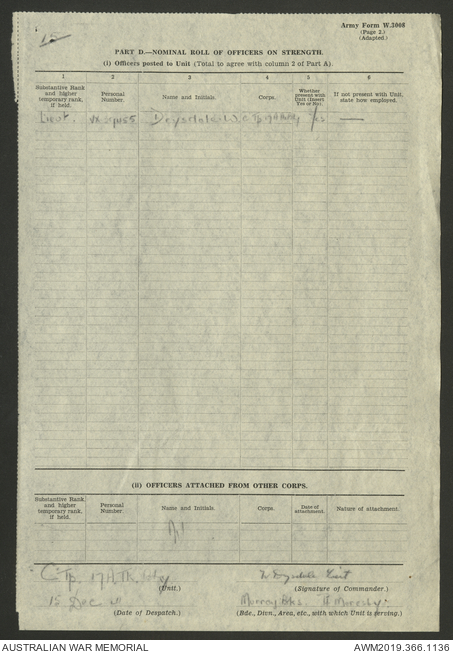 15
Army Form W.3008
(Page 2.)
(Adapted.)
PART D.—NOMINAL ROLL OF OFFICERS ON STRENGTH.
(i) Officers posted to Unit (Total to agree with column 2 of Part A).
1 2 3 4 5 6
Substantive Rank and higher temporary rank, if held.
Personal Number.
Name and Initials.
Corps.
Whether present with Unit (Insert Yes or No).
If not present with Unit, state how employed.
Lieut. Yes —
(ii) OFFICERS ATTACHED FROM OTHER CORPS.
Substantive Rank and higher temporary rank, if held.
Personal Number.
Name and Initials.
Corps.
Date of attachment.
Nature of attachment.
C Tp. Lieut
(Unit.) (Signature of Commander.)
15 Dec Murray Bks.
(Date of Despatch.) (Bde., Divn., Area, etc., with which Unit is serving.)
AUSTRALIAN WAR MEMORIAL AWM2019.366.1136